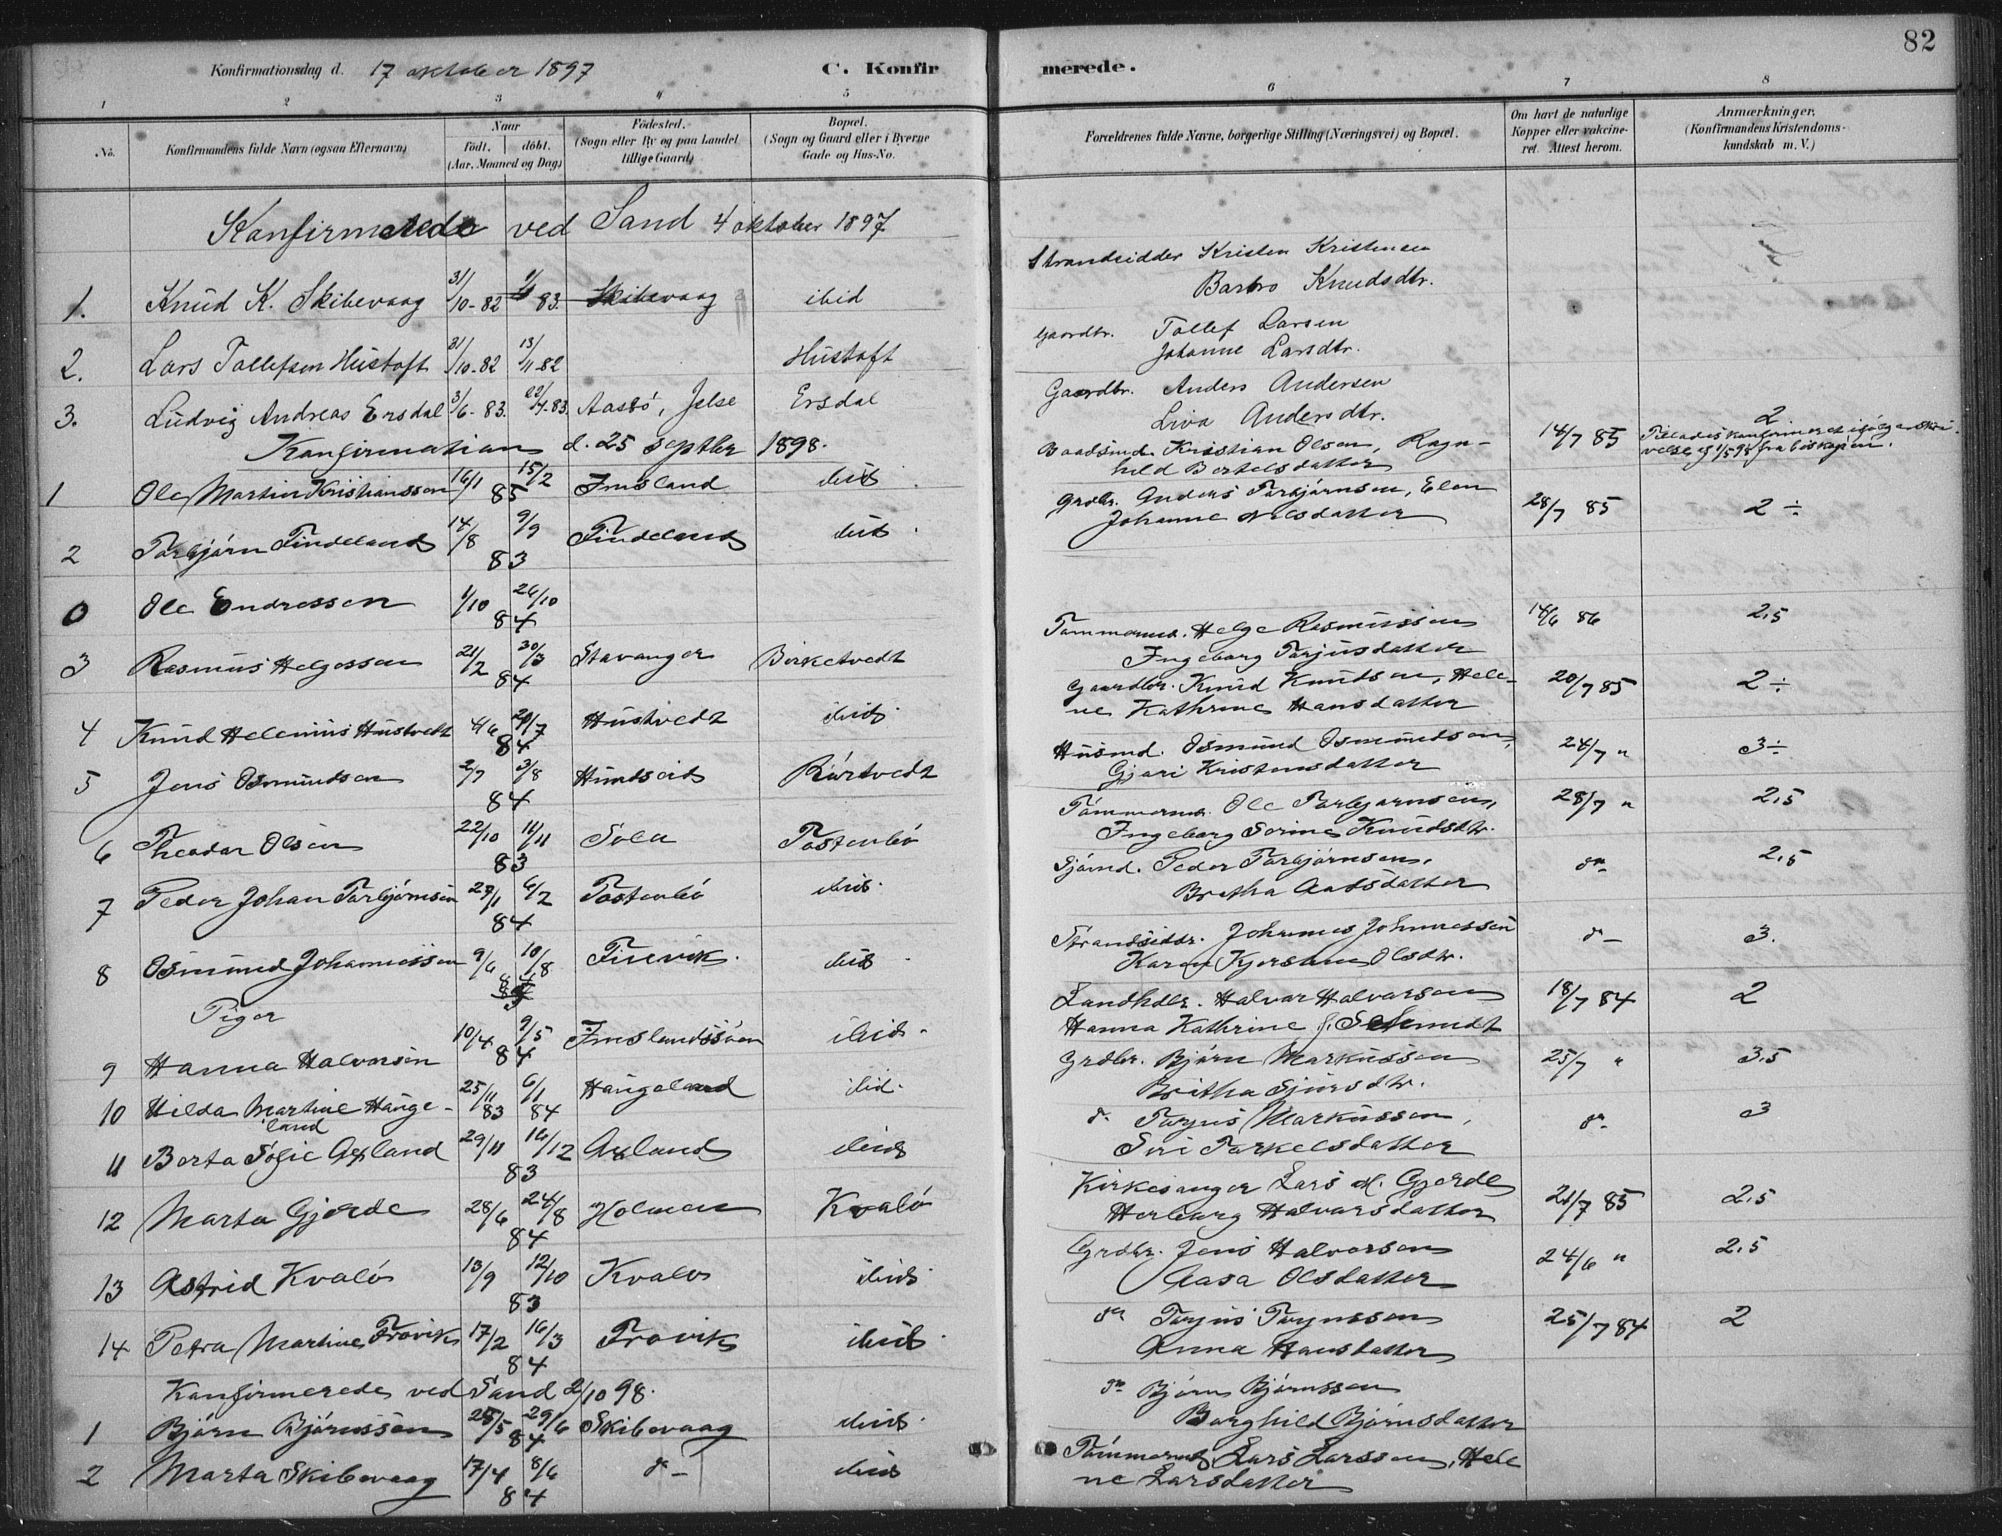 82
Konfirmationsdag d. 17 oktober 1897 C. Konfirmerede.
1 2 3 4 5 6 7 8
No. Konfirmandens fulde Navn (ogsaa Efternavn) Naar født. døbt. (Aar, Maaned og Dag) Fødested. (Sogn eller By og paa Landet tillige Gaard) Bopæl. (Sogn og Gaard eller i Byerne Gade og Hus-No. Forældrenes fulde Navne, borgerlige Stilling (Næringsvei) og Bopæl. Om havt de naturlige Kopper eller vakcineret. Attest herom. Anmærkninger. (Konfirmandens Kristendomskundskab m. V.)
Konfirmerede ved Sand 4 oktober 1897
1. Knud K. Skibevaag 31/10-82 83. Skibevaag ibid Strandsidder Kristen Kristensen
Barbro Knudsdtr.
2. Lars Tollefsen Hustoft 31/10-82 13/11-82 Hustoft Gaardbr. Tollef Larsen
Johanne Larsdtr.
3. Ludvig Andreas Ersdal 3/6-83. Aasbö, Jelse Ersdal Gaardbr. Anders Andersen
Liva Andersdtr.
Konfirmation d. 25 septbr 1898.
1 Ole Martin Kristianssen 16/1 15/2 85 Imsland ibid Baadsmd. Kristian Olsen, Ragn-
hild Bertelsdatter 14/7 85 2
Tillades konfirmeret ifölge skri-
velse af 1/5 98 fra biskopen.
2 Torbjörn Tindeland 14/8 9/9 83 Tindeland ibid. Grdbr. Anders Torbjörnsen, Elen
Johanne Nilsdatter 28/7 85 2÷
0 Ole Endressen 1/10 26/10 84
3 Rasmus Helgessen 21/2 30/3 84 Stavanger Birketvedt Tömmermd. Helge Rasmussen
Ingeborg Torjusdatter 14/6 86 2,5
4 Knud Helenius Hustvedt 4/6 20/7 84 Hustvedt ibid. Gaardbr. Knud Knudsen, Hele-
ne Kathrine Hansdatter 20/7 85 2÷
5 Jens Osmundsen 2/7 3/8 84 Hundseid Rörtvedt Husmd. Osmund Osmundsen,
Gjøri Kristensdatter 24/7 " 3÷
6 Theodor Olsen 22/10 11/11 83 Sola Tostenbö Tömmermd. Ole Torbjörnsen,
Ingeborg Serine Knudsdtr. 28/7 " 2,5
7 Peder Johan Torbjörnsen 27/1 6/2 84 Tostenbö ibid. Sjömd. Peder Torbjörnsen,
Britha Aadsdatter do 2,5
8 Osmund Johannessen 9/6 10/8 ibid Strandsidder. Johannes Johannessen
Karen Kjerstine Olsdtr. do 3.
Piger
9 Hanna Halvorsen 10/4 9/5 84 Imslandssöen ibid. Landhdlr. Halvor Halvorsen
Hanna Kathrine f. Schmidt 18/7 84 2
10 Hilda Martine Hauge-
land 25/11 83 6/1 84 Haugeland ibid. Grdbr. Björn Markussen
Britha Sjursdtr. 25/7 " 3,5
11 Berta Sofie Axland 29/11 16/12 83 Axland ibid do Torjus Markussen,
Siri Torkelsdatter do 3
12 Marta Gjerde 28/6 24/8 84 Holmen Kvalö Kirkesanger Lars M. Gjerde
Herborg Halvorsdatter 21/7 85 2,5
13 Astrid Kvalö 13/9 12/10 83 Kvalö ibid. Grdbr. Jens Halvorsen
Aasa Olsdatter 24/6 " 2,5
14 Petra Martine Frövik 17/2 16/3 84 Frövik ibid. do Torjus Torjussen
Anna Hansdatter 25/7 84 2
Konfirmerede ved Sand 2/10 98.
1 Björn Björnssen 25/5 29/6 84 Skibevaag ibid. do Björn Björnssen
Borghild Björnsdatter
2 Marta Skibevaag 17/4 8/6 84 do ibid Tömmermd. Lars Larssen, Hele
ne Larsdatter